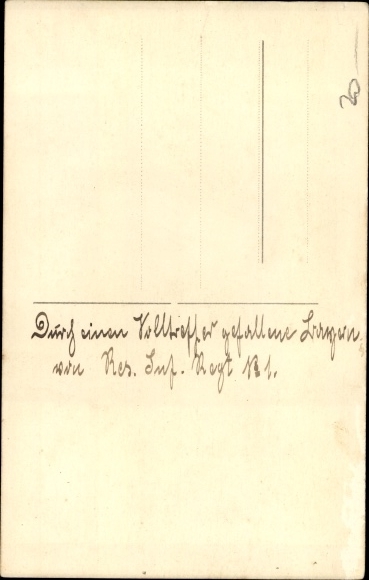 20 —
Durch einen Volltreffer gefallene Bayern
von Res. Inf. Regt № 1.